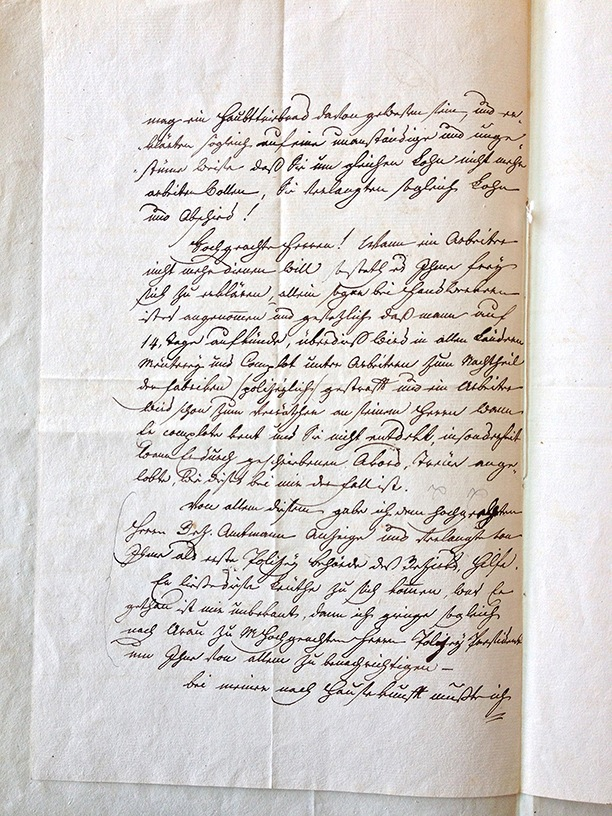 mag ein Haubttriebrad davon gewesen sein, und er-
klärten sogleich auf eine unanständige und unge-
stüme Weise daß Sie um gleichen Lohn nicht mehr
arbeiten Wollen, Sie verlangten sogleich Lohn
und Abschied!
Hochgeachte Herren! Wann ein Arbeiter
nicht mehr dienen Will so steht es Ihme frey
sich zu erklären, allein sogar bei Handwerkeren
ist es angenommen und gesetzlich daß mann auf
14. Tage aufkünde, überdieß Wird in allen Länderen
Meuterey und Complot unter Arbeitern zum Nachtheil
der Fabriken polizeylich gestraft und ein Arbeiter
Wird schon zum Verräther an seinem Herren Wann
Er complote kent und Sie nicht entdekt, insonderheit
Wann Er durch geschriebenen Acord, Treue ange-
lobte, Wie dieß bei mir der fall ist.
Von allem diesem gabe ich dem Hochgeachten
Herren Amtmann Anzeige und Verlangte von
Ihme als erste Polizey Behörde des Bezirks, Hilfe.
Er ließe diese Leuthe zu sich komen, was Er
gethan ist mir unbekant, dann ich gienge sogleich
nach Arau zu Mhochgeachten Herren Polizey
um Ihne von allem zu benachrichtigen –
bei meiner nach Hause kunft mußte ich